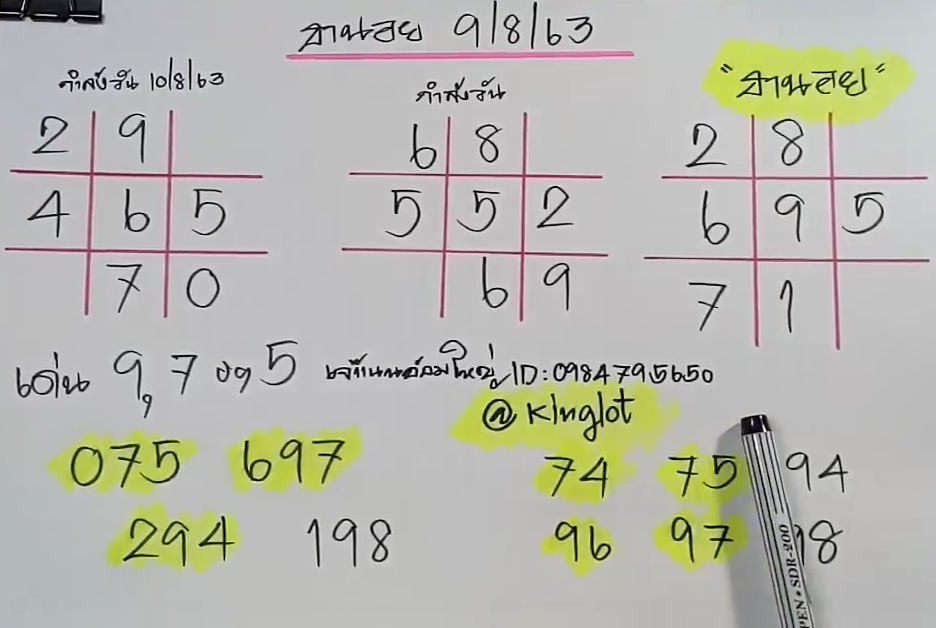 ฮานอย 9/8/63
กำลังวัน 10/8/63
2 9
4 6 5
7 0
กำลังวัน
6 8
5 5 2
6 9
"ฮานอย"
2 8
6 9 5
7 1
เด่น 9, 7 รอง 5
ID:0984795650
@Kinglot
075 697
294 198
74 75 94
96 97 18
PEN • SDR-200